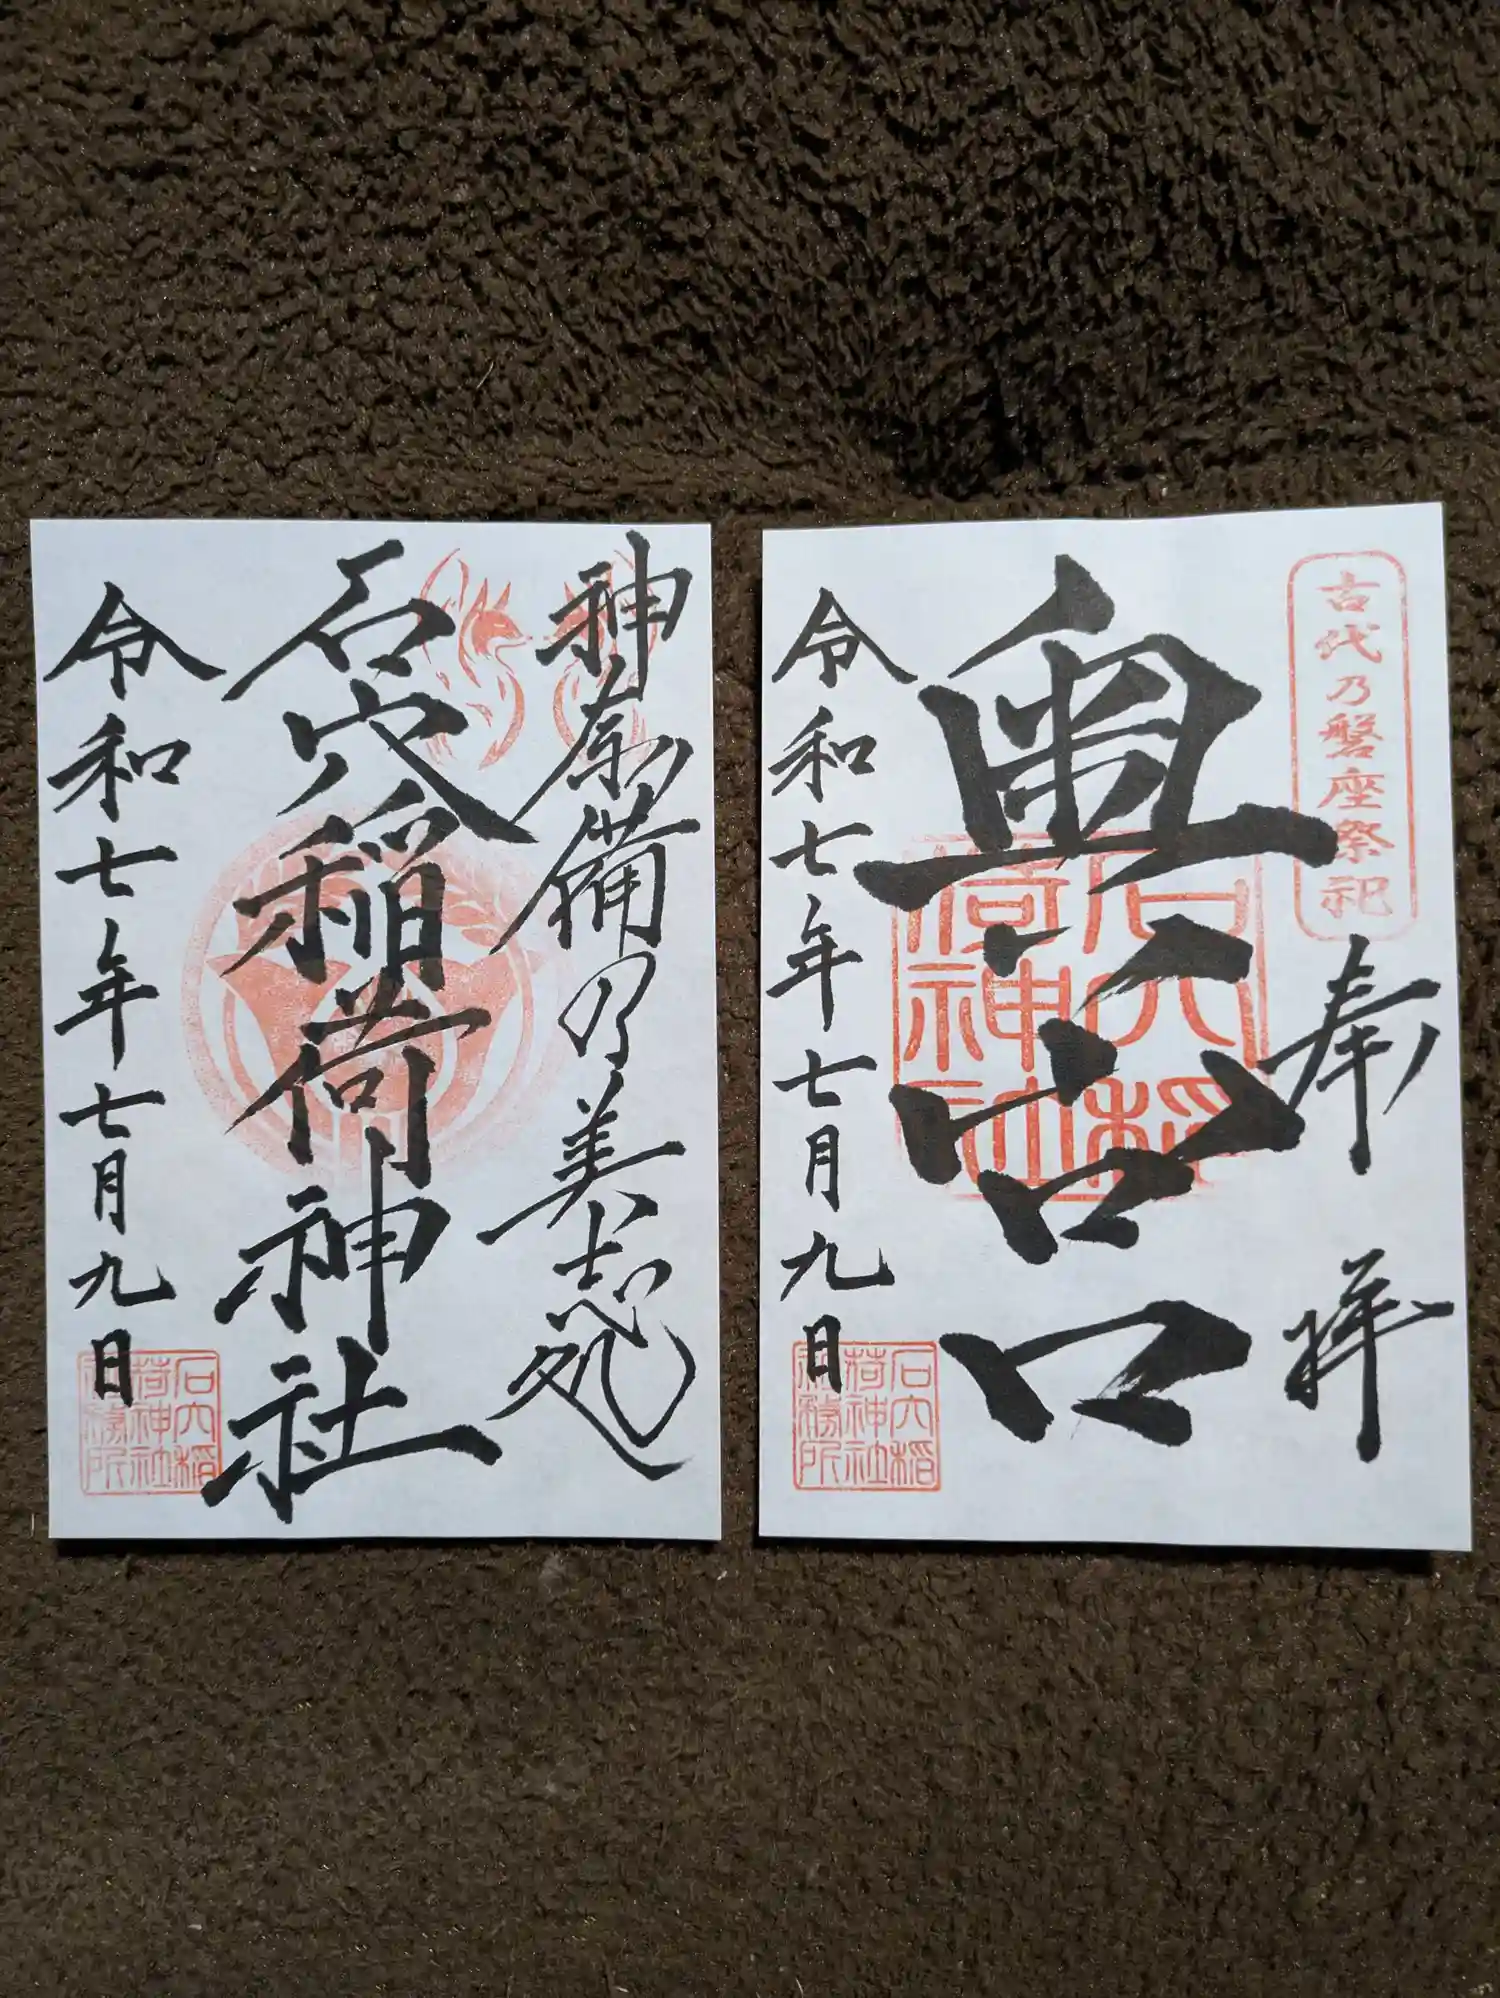 神奈備乃美志処
石穴稲荷神社
令和七年七月九日
石穴稲荷神社社務所
古代乃磐座祭祀
奉拝
奥宮
石穴稲荷神社
令和七年七月九日
石穴稲荷神社社務所